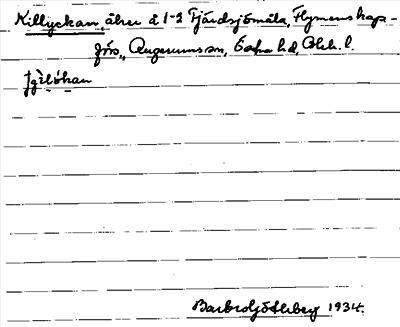 Killyckan, åker å 1-2 Fjärdsjömåla, Flymens kap-
för., Augerums sn, Östra hd, Blek. l.
Barbro Götlberg 1934.